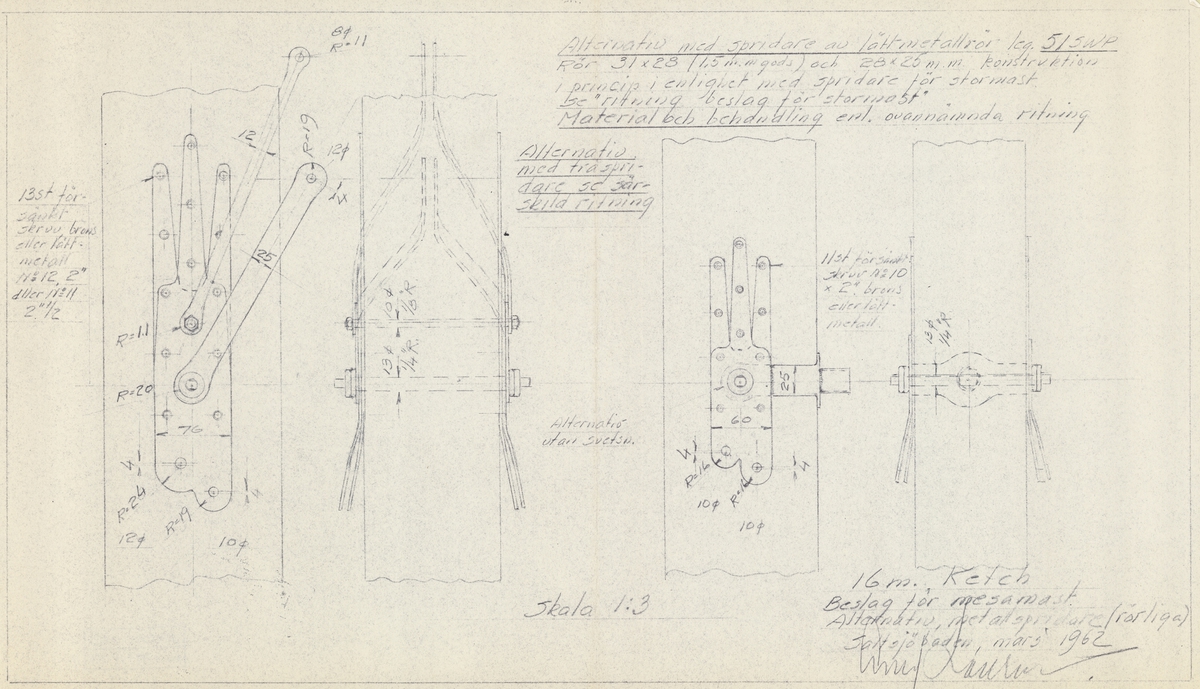 Alternativ med spridare av lättmetallrör leg. 51SWP
Rör 31x28 (1.5 m.m gods) och 28x25 m.m konstruktion
i princip i enlighet med spridare för stormast
Se "ritning beslag för stormast"
Material och behandling enl. ovannämnda ritning
Alternativ
med träspri-
dare se sär-
skild ritning
13st för-
sänkt
skruv brons
eller lätt-
metall
Nº12, 2"
eller Nº11
2"1/2
8φ
R=11
12
R=19
12φ
4
25
R=11
R=20
76
4
R=24
12φ
R=19
10φ
4
10φ
1/8"R
13φ
1/4"R
Alternativ
utan svetsn.
11st försänkt
skruv Nº10
x 2" brons
eller lätt-
metall.
25
60
4
R=16
10φ
R=16
10φ
4
13φ
1/4"R
Skala 1:3
16 m. Ketch
Beslag för mesamast
Alternativ, metallspridare (rörliga)
Saltsjöbaden, mars 1962